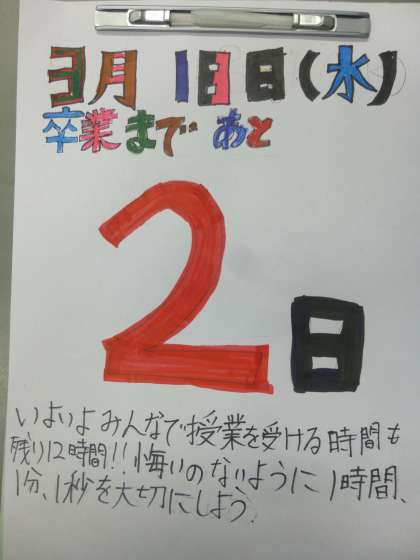 3月18日(水)
卒業まで あと
2日
いよいよみんなで授業を受ける時間も
残り12時間!!悔いのないように1時間、
1分、1秒を大切にしよう.